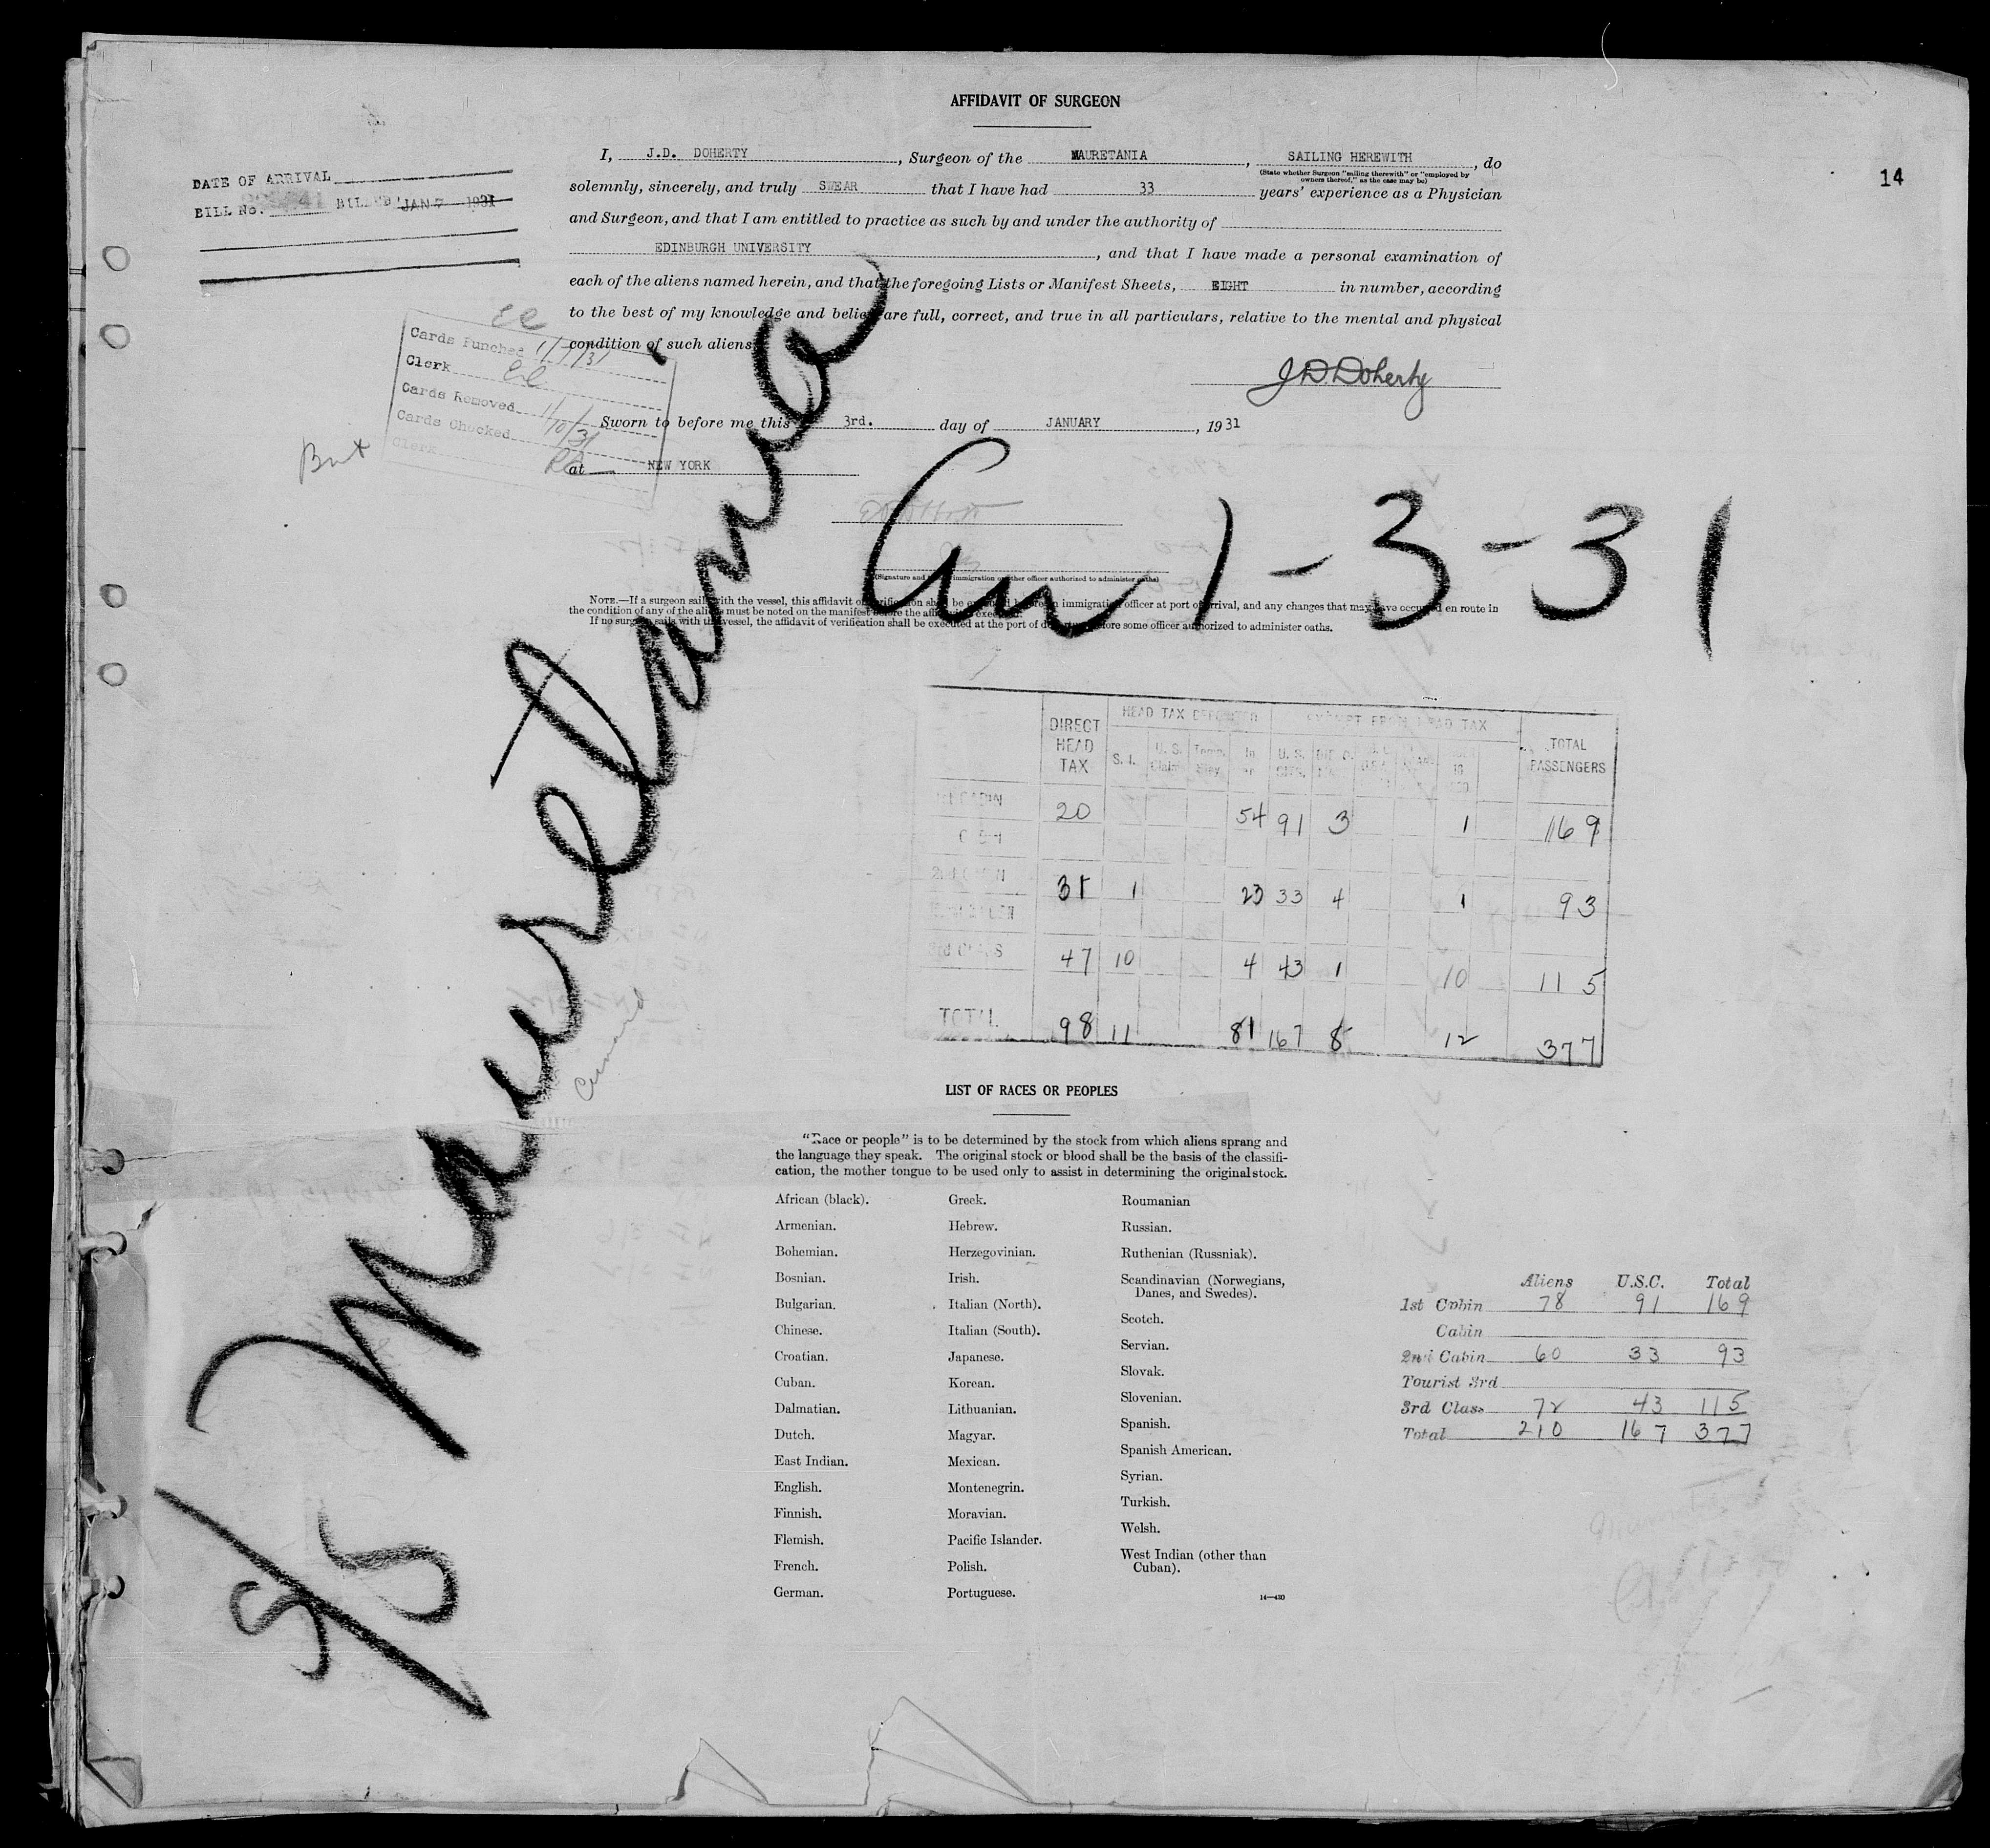 AFFIDAVIT OF SURGEON
14
I, J.D. DOHERTY, Surgeon of the MAURETANIA, SAILING HEREWITH, do
(State whether Surgeon "sailing therewith" or "employed by owners thereof," as the case may be)
solemnly, sincerely, and truly SWEAR that I have had 33 years' experience as a Physician
and Surgeon, and that I am entitled to practice as such by and under the authority of
EDINBURGH UNIVERSITY, and that I have made a personal examination of
each of the aliens named herein, and that the foregoing Lists or Manifest Sheets, EIGHT in number, according
to the best of my knowledge and belief are full, correct, and true in all particulars, relative to the mental and physical
condition of such aliens.
J D Doherty
Sworn to before me this 3rd. day of JANUARY, 1931
at NEW YORK
(Signature and immigration or other officer authorized to administer oaths)
NOTE.—If a surgeon sails with the vessel, this affidavit of verification shall be executed before an immigration officer at port of arrival, and any changes that may have occurred en route in
the condition of any of the aliens must be noted on the manifest before the affidavit is executed.
If no surgeon sails with the vessel, the affidavit of verification shall be executed at the port of departure before some officer authorized to administer oaths.
DATE OF ARRIVAL
BILL No. BILLED JAN 7 1931
Cards Punched 1/7/31
Clerk
Cards Removed
Cards Checked 1/10/31
Clerk
S/S Mauretania
Arr 1-3-31
Cunard
DIRECT HEAD TAX
HEAD TAX DEPOSITED
EXEMPT FROM HEAD TAX
TOTAL PASSENGERS
S. I. U. S. Claim Temp. Stay In U. S. CITS.
1st CABIN 20 54 91 3 1 169
2nd CABIN 31 1 23 33 4 1 93
3rd CLASS 47 10 4 43 1 10 115
TOTAL 98 11 81 167 8 12 377
LIST OF RACES OR PEOPLES
"Race or people" is to be determined by the stock from which aliens sprang and
the language they speak. The original stock or blood shall be the basis of the classifi-
cation, the mother tongue to be used only to assist in determining the original stock.
African (black).
Armenian.
Bohemian.
Bosnian.
Bulgarian.
Chinese.
Croatian.
Cuban.
Dalmatian.
Dutch.
East Indian.
English.
Finnish.
Flemish.
French.
German.
Greek.
Hebrew.
Herzegovinian.
Irish.
Italian (North).
Italian (South).
Japanese.
Korean.
Lithuanian.
Magyar.
Mexican.
Montenegrin.
Moravian.
Pacific Islander.
Polish.
Portuguese.
Roumanian
Russian.
Ruthenian (Russniak).
Scandinavian (Norwegians,
Danes, and Swedes).
Scotch.
Servian.
Slovak.
Slovenian.
Spanish.
Spanish American.
Syrian.
Turkish.
Welsh.
West Indian (other than
Cuban).
14—430
Aliens U.S.C. Total
1st Cabin 78 91 169
Cabin
2nd Cabin 60 33 93
Tourist 3rd
3rd Class 72 43 115
Total 210 167 377